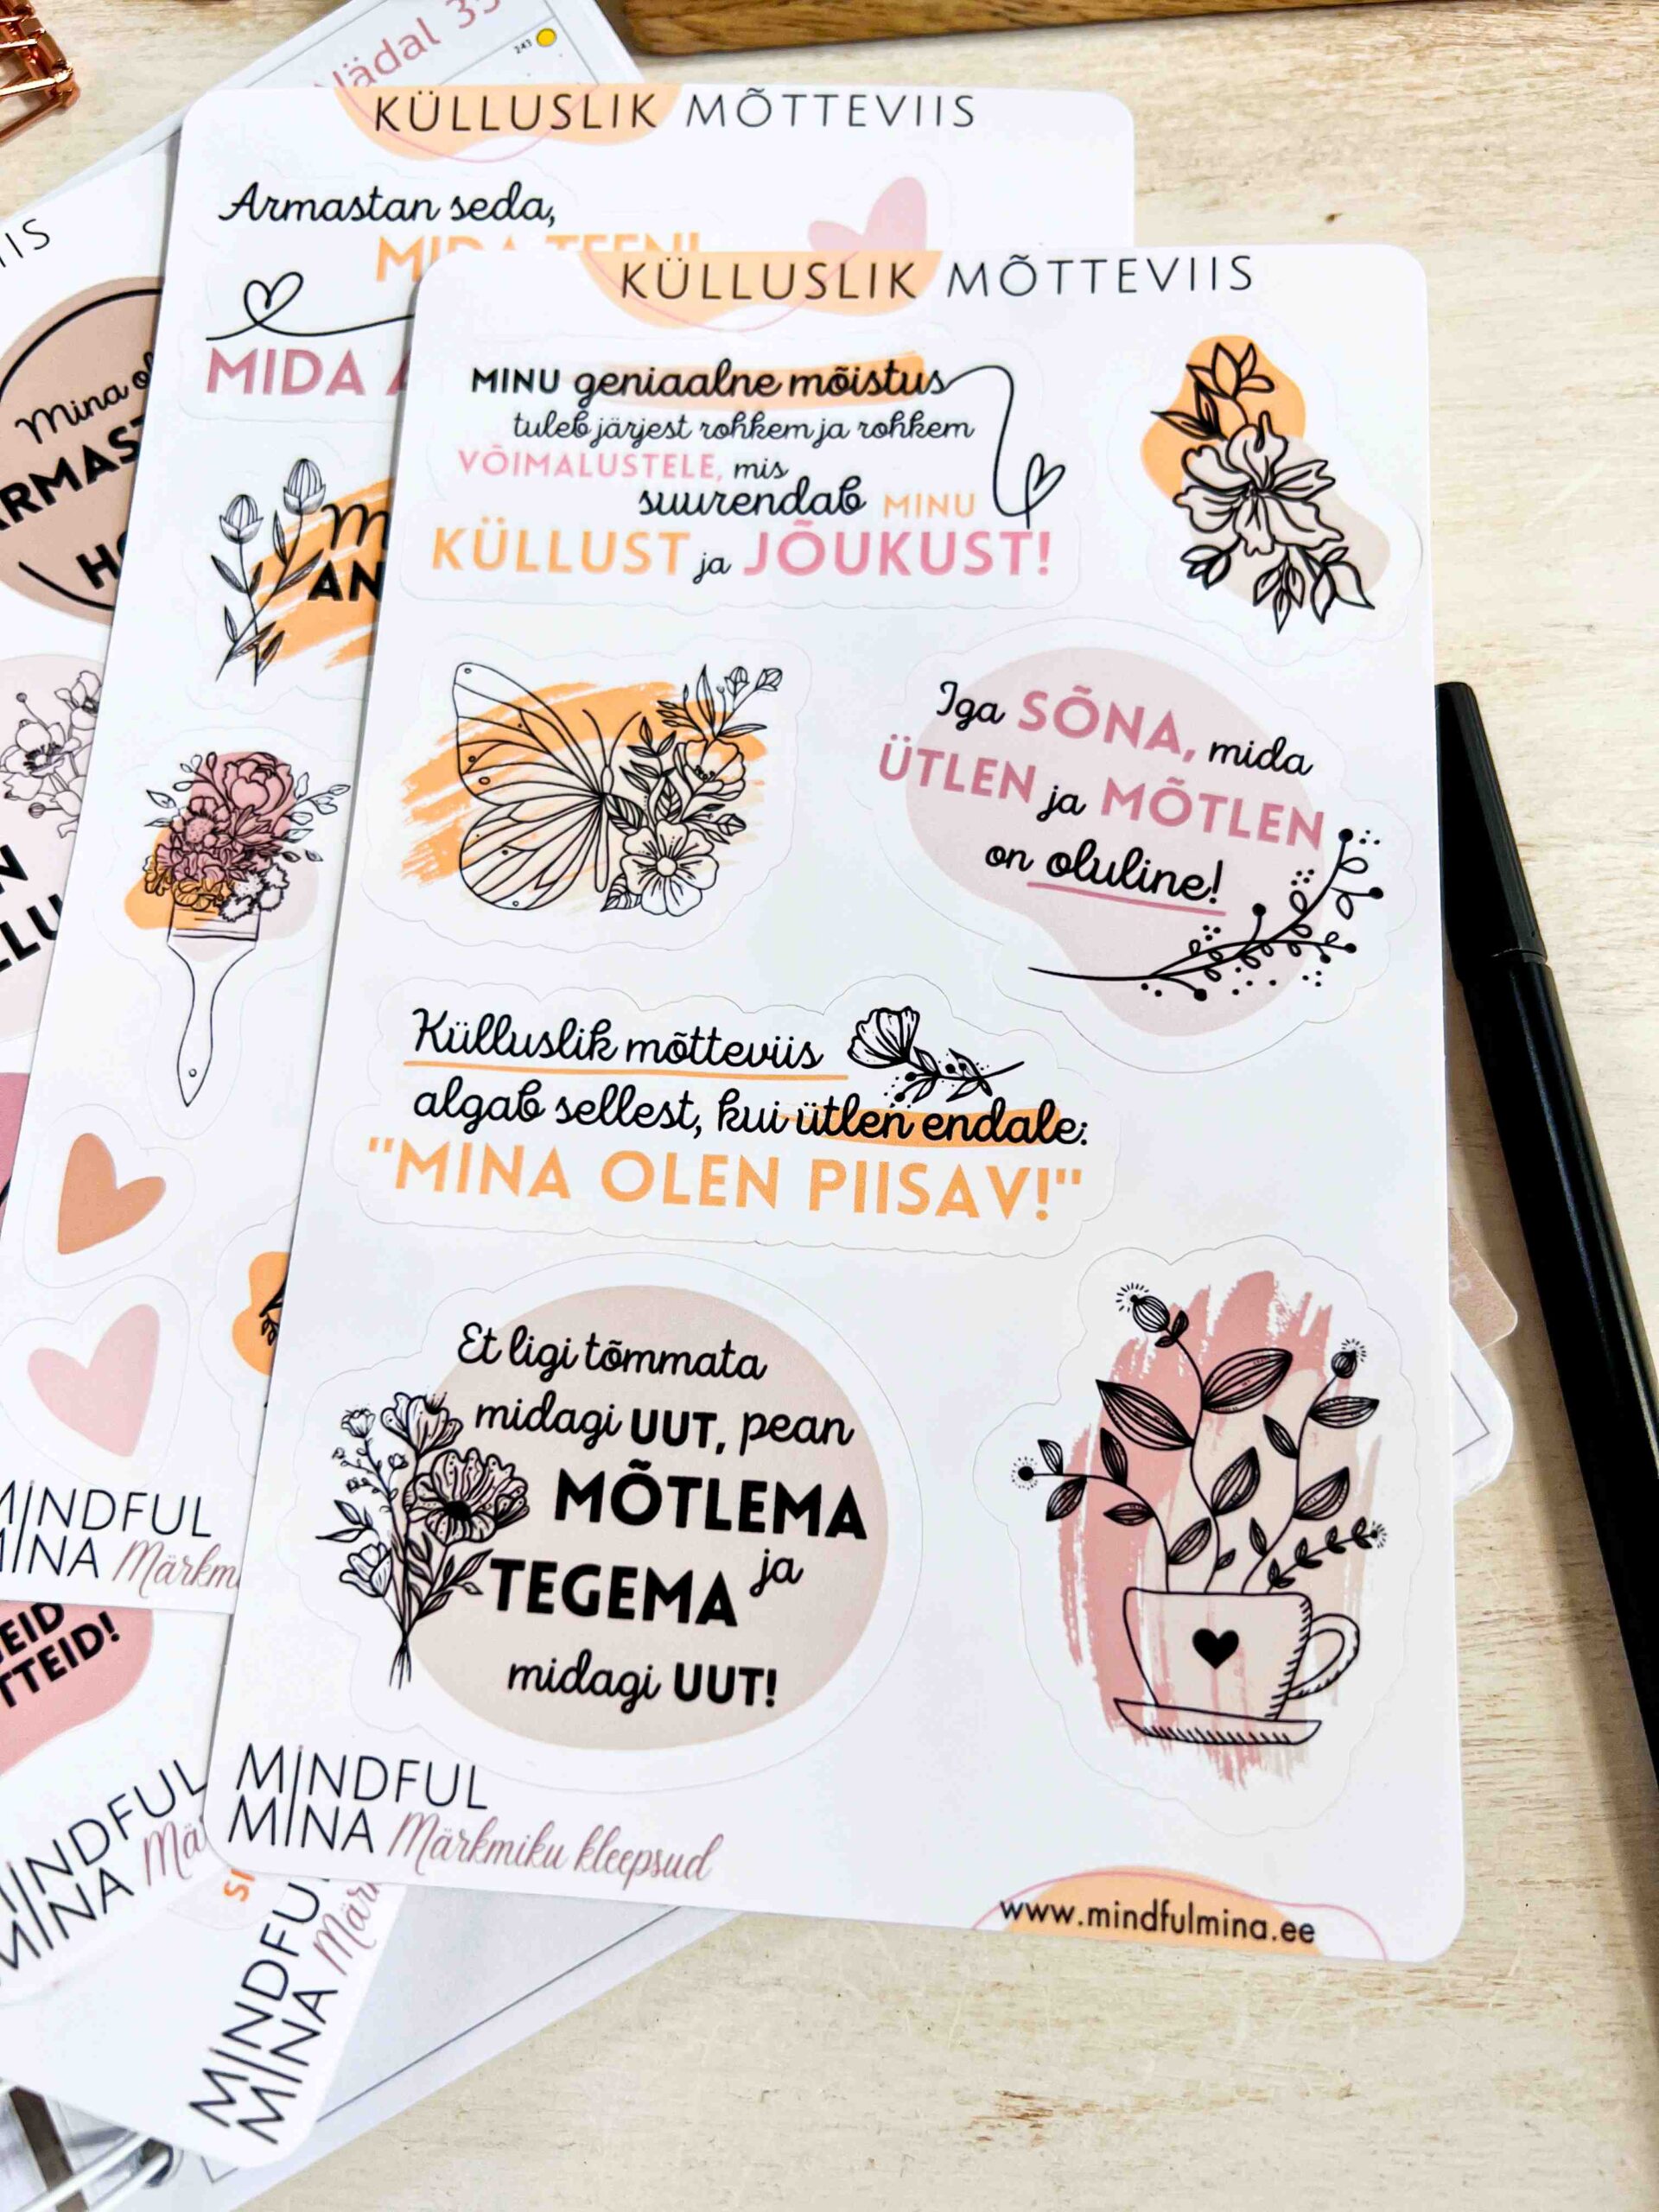 Nädal 35
243
KÜLLUSLIK MÕTTEVIIS
Armastan seda,
MIDA TEEN!
MIDA
Mina
KÜLLUSLIK MÕTTEVIIS
MINU geniaalne mõistus
tuleb järjest rohkem ja rohkem
VÕIMALUSTELE, mis
suurendab MINU
KÜLLUST ja JÕUKUST!
Iga SÕNA, mida
ÜTLEN ja MÕTLEN
on oluline!
Külluslik mõtteviis
algab sellest, kui ütlen endale:
"MINA OLEN PIISAV!"
Et ligi tõmmata
midagi UUT, pean
MÕTLEMA
ja
TEGEMA
midagi UUT!
MINDFUL
MINA Märkmiku kleepsud
www.mindfulmina.ee
MINDFUL
MINA
MINDFUL
MINA
MINDFUL
MINA